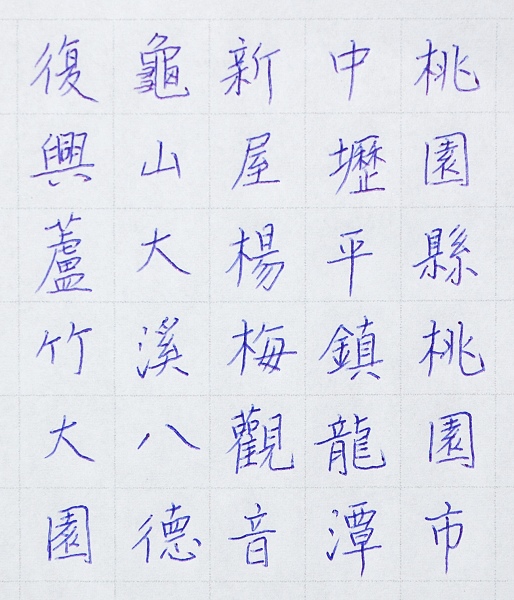 桃園縣桃園市
中壢平鎮龍潭
新屋楊梅觀音
龜山大溪八德
復興蘆竹大園